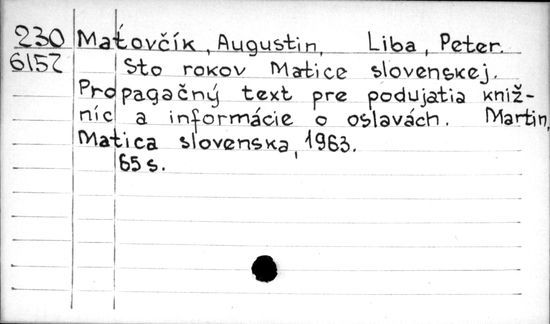 230 Maťovčík, Augustin, Liba, Peter.
6152 Sto rokov Matice slovenskej.
Propagačný text pre podujatia kniž-
níc a informácie o oslavách. Martin,
Matica slovenska, 1963.
65 s.